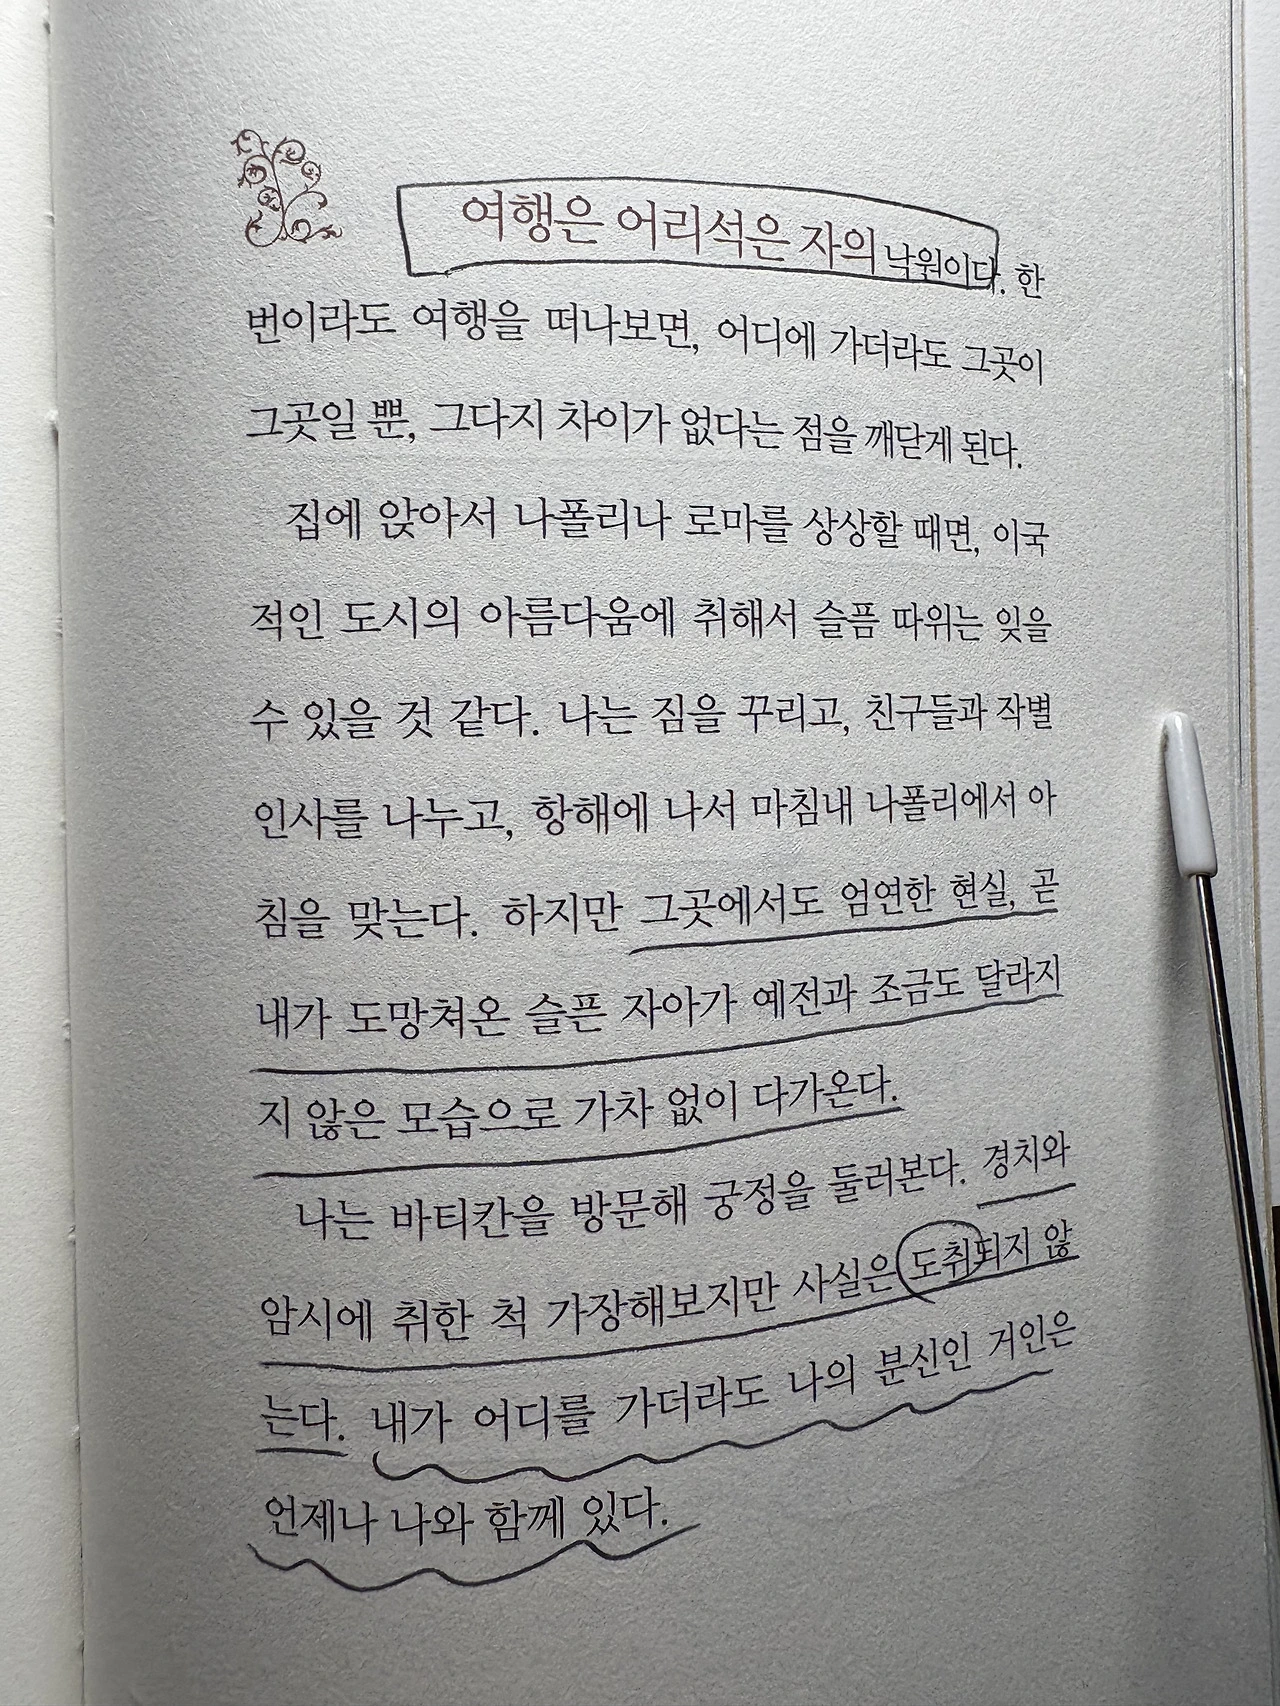 여행은 어리석은 자의 낙원이다. 한
번이라도 여행을 떠나보면, 어디에 가더라도 그곳이
그곳일 뿐, 그다지 차이가 없다는 점을 깨닫게 된다.
집에 앉아서 나폴리나 로마를 상상할 때면, 이국
적인 도시의 아름다움에 취해서 슬픔 따위는 잊을
수 있을 것 같다. 나는 짐을 꾸리고, 친구들과 작별
인사를 나누고, 항해에 나서 마침내 나폴리에서 아
침을 맞는다. 하지만 그곳에서도 엄연한 현실, 곧
내가 도망쳐온 슬픈 자아가 예전과 조금도 달라지
지 않은 모습으로 가차 없이 다가온다.
나는 바티칸을 방문해 궁정을 둘러본다. 경치와
암시에 취한 척 가장해보지만 사실은 도취되지 않
는다. 내가 어디를 가더라도 나의 분신인 거인은
언제나 나와 함께 있다.